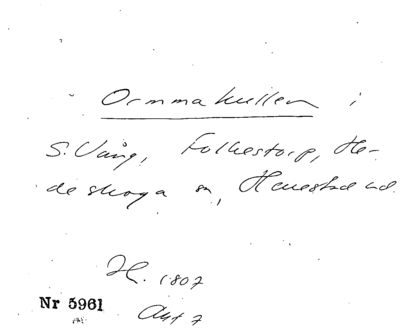 Ormmakullen i
S. Vång, Folkestorp, He-
deskoga sn, Herrestad hd.
H. 1807
Akt 7
Nr 5961